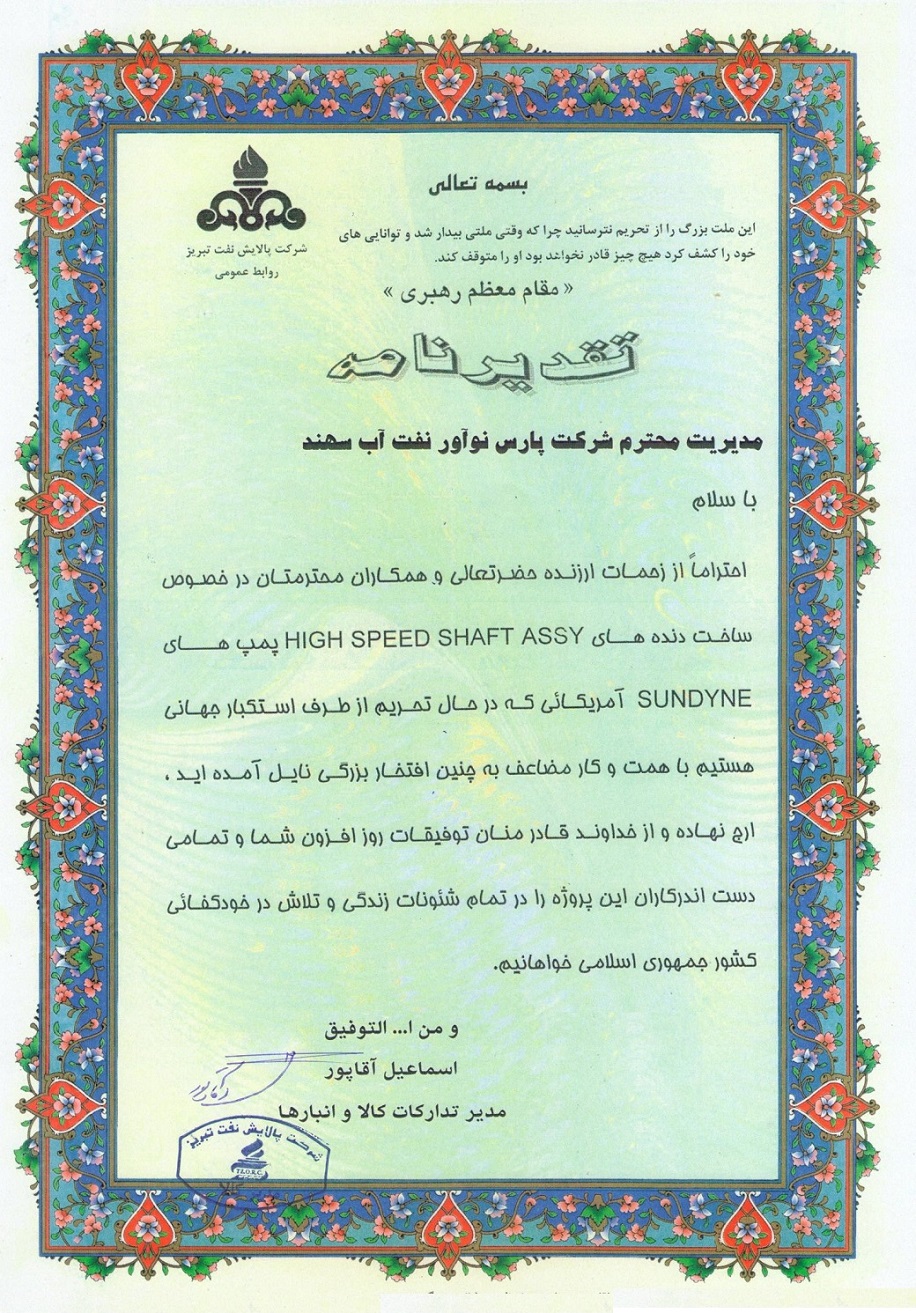 بسمه تعالی
شرکت پالایش نفت تبریز
روابط عمومی
این ملت بزرگ را از تحریم نترسانید چرا که وقتی ملتی بیدار شد و توانایی های
خود را کشف کرد هیچ چیز قادر نخواهد بود او را متوقف کند.
« مقام معظم رهبری »
تقدیرنامه
مدیریت محترم شرکت پارس نوآور نفت آب سهند
با سلام
احتراماً از زحمات ارزنده حضرتعالی و همکاران محترمتان در خصوص
ساخت دنده هـای HIGH SPEED SHAFT ASSY پمپ هـای
SUNDYNE آمریکائی کـه در حـال تحریم از طـرف استکبار جهـانی
هستیم با همت و کار مضاعف به چنین افتخار بزرگـی نایـل آمـده ایـد ،
ارج نهـاده و از خداونـد قـادر منـان توفیقـات روز افـزون شمـا و تمـامی
دست اندرکاران این پروژه را در تمام شئونات زندگی و تلاش در خودکفـائی
کشور جمهوری اسلامی خواهانیم.
و من ا... التوفیق
اسماعیل آقاپور
مدیر تدارکات کالا و انبارها
شرکت پالایش نفت تبریز
T.O.R.C.